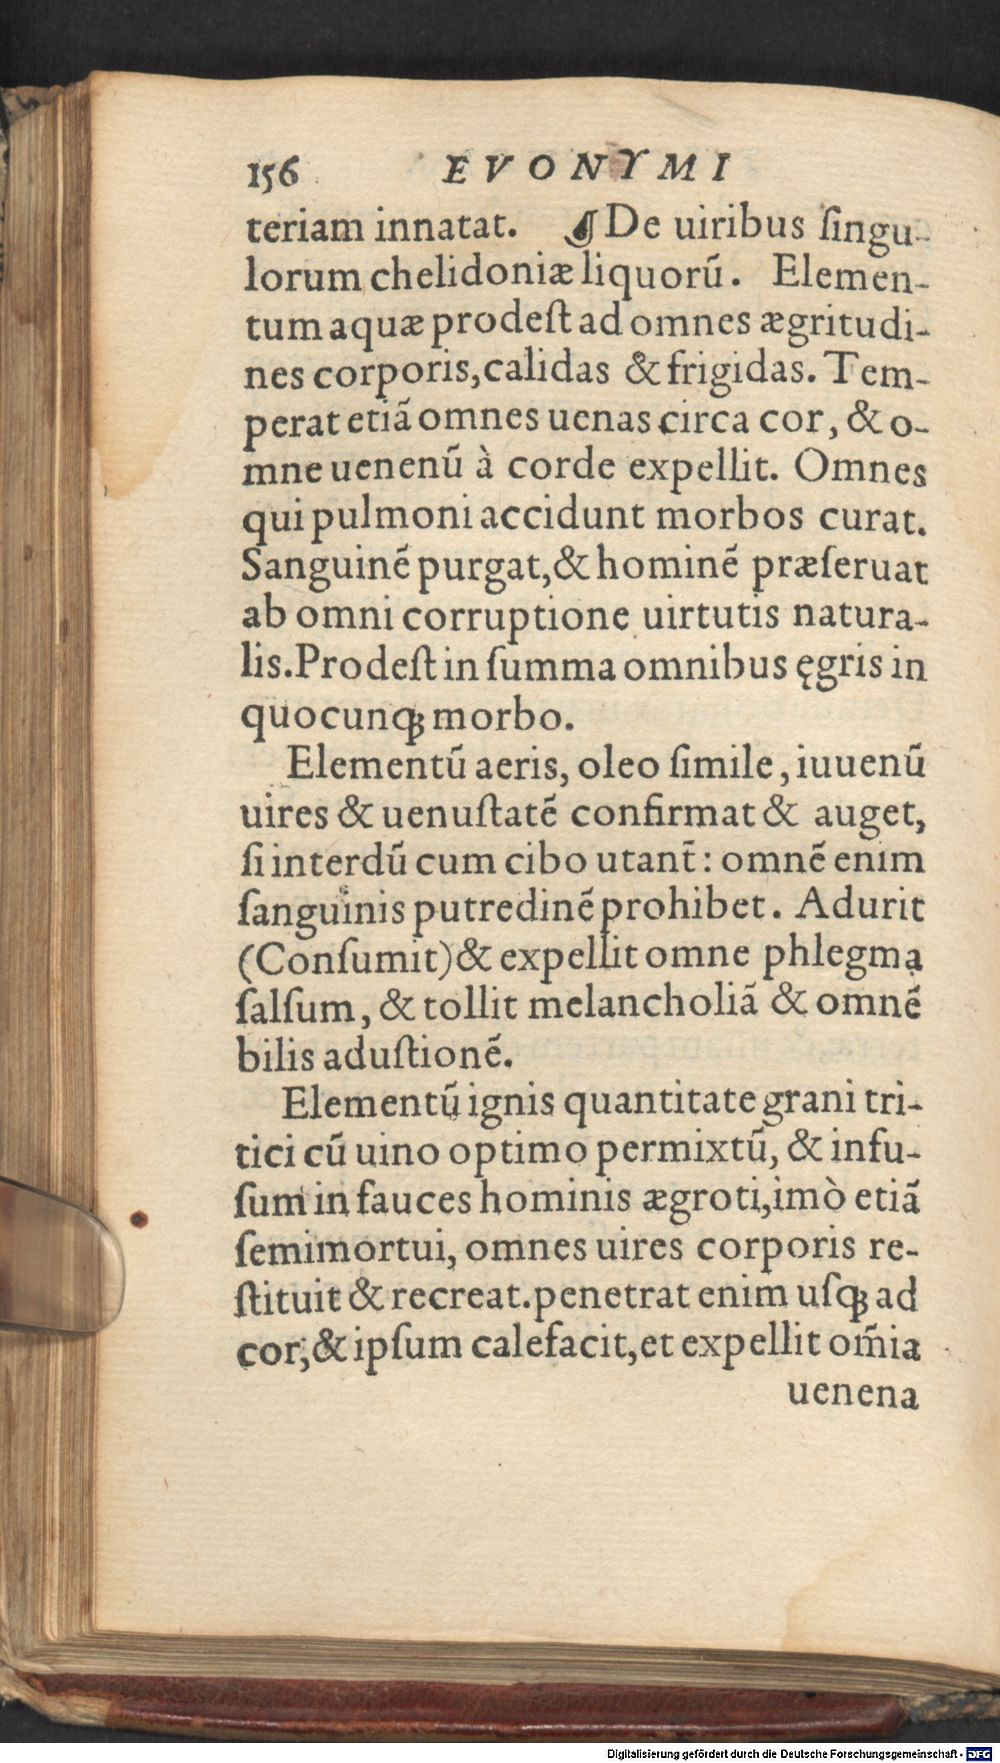 156 EVONYMI
teriam innatat. ☙De uiribus ſingu-
lorum chelidoniæ liquorū. Elemen-
tum aquæ prodeſt ad omnes ægritudi-
nes corporis, calidas & frigidas. Tem-
perat etiã omnes uenas circa cor, & o-
mne uenenū à corde expellit. Omnes
qui pulmoni accidunt morbos curat.
Sanguinē purgat, & hominē præſeruat
ab omni corruptione uirtutis natura-
lis. Prodeſt in ſumma omnibus ęgris in
quocunqꝫ morbo.
Elementū aeris, oleo ſimile, iuuenū
uires & uenuſtatē confirmat & auget,
ſi interdū cum cibo utant̄: omnē enim
ſanguinis putredinē prohibet. Adurit
(Conſumit) & expellit omne phlegma
ſalſum, & tollit melancholiã & omnē
bilis aduſtionē.
Elementū ignis quantitate grani tri-
tici cū uino optimo permixtū, & infu-
ſum in fauces hominis ægroti, imò etiã
ſemimortui, omnes uires corporis re-
ſtituit & recreat. penetrat enim uſqꝫ ad
cor, & ipſum calefacit, et expellit om̃ia
uenena
Digitalisierung gefördert durch die Deutsche Forschungsgemeinschaft - DFG